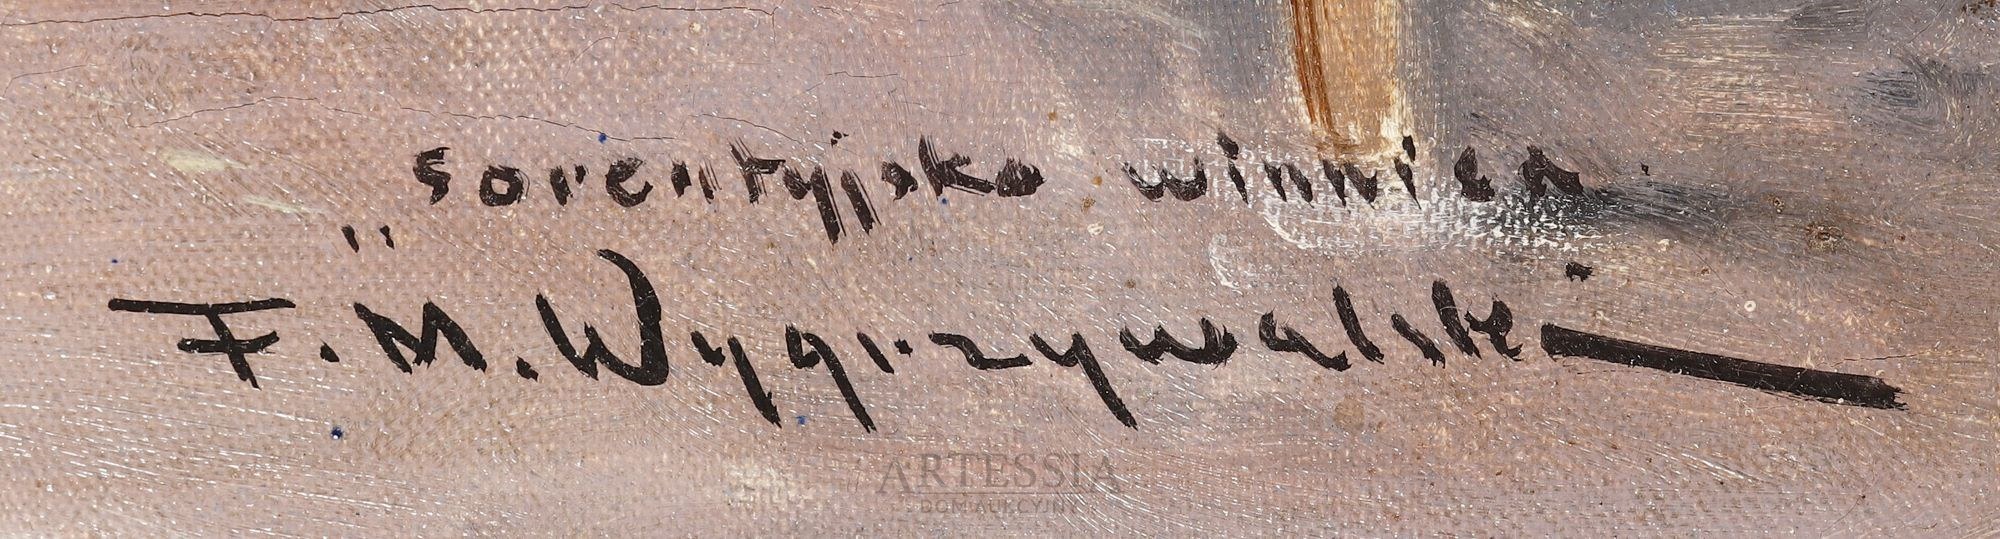 „sorentyjska winnica
F. M. Wygrzywalski
ARTESSIA
DOM AUKCYJNY